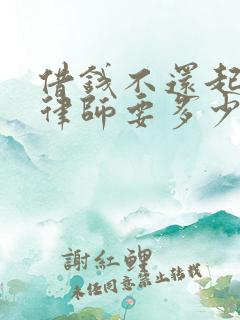 借錢不還起
律師要多少
謝紅鯉
未经同意禁止转载